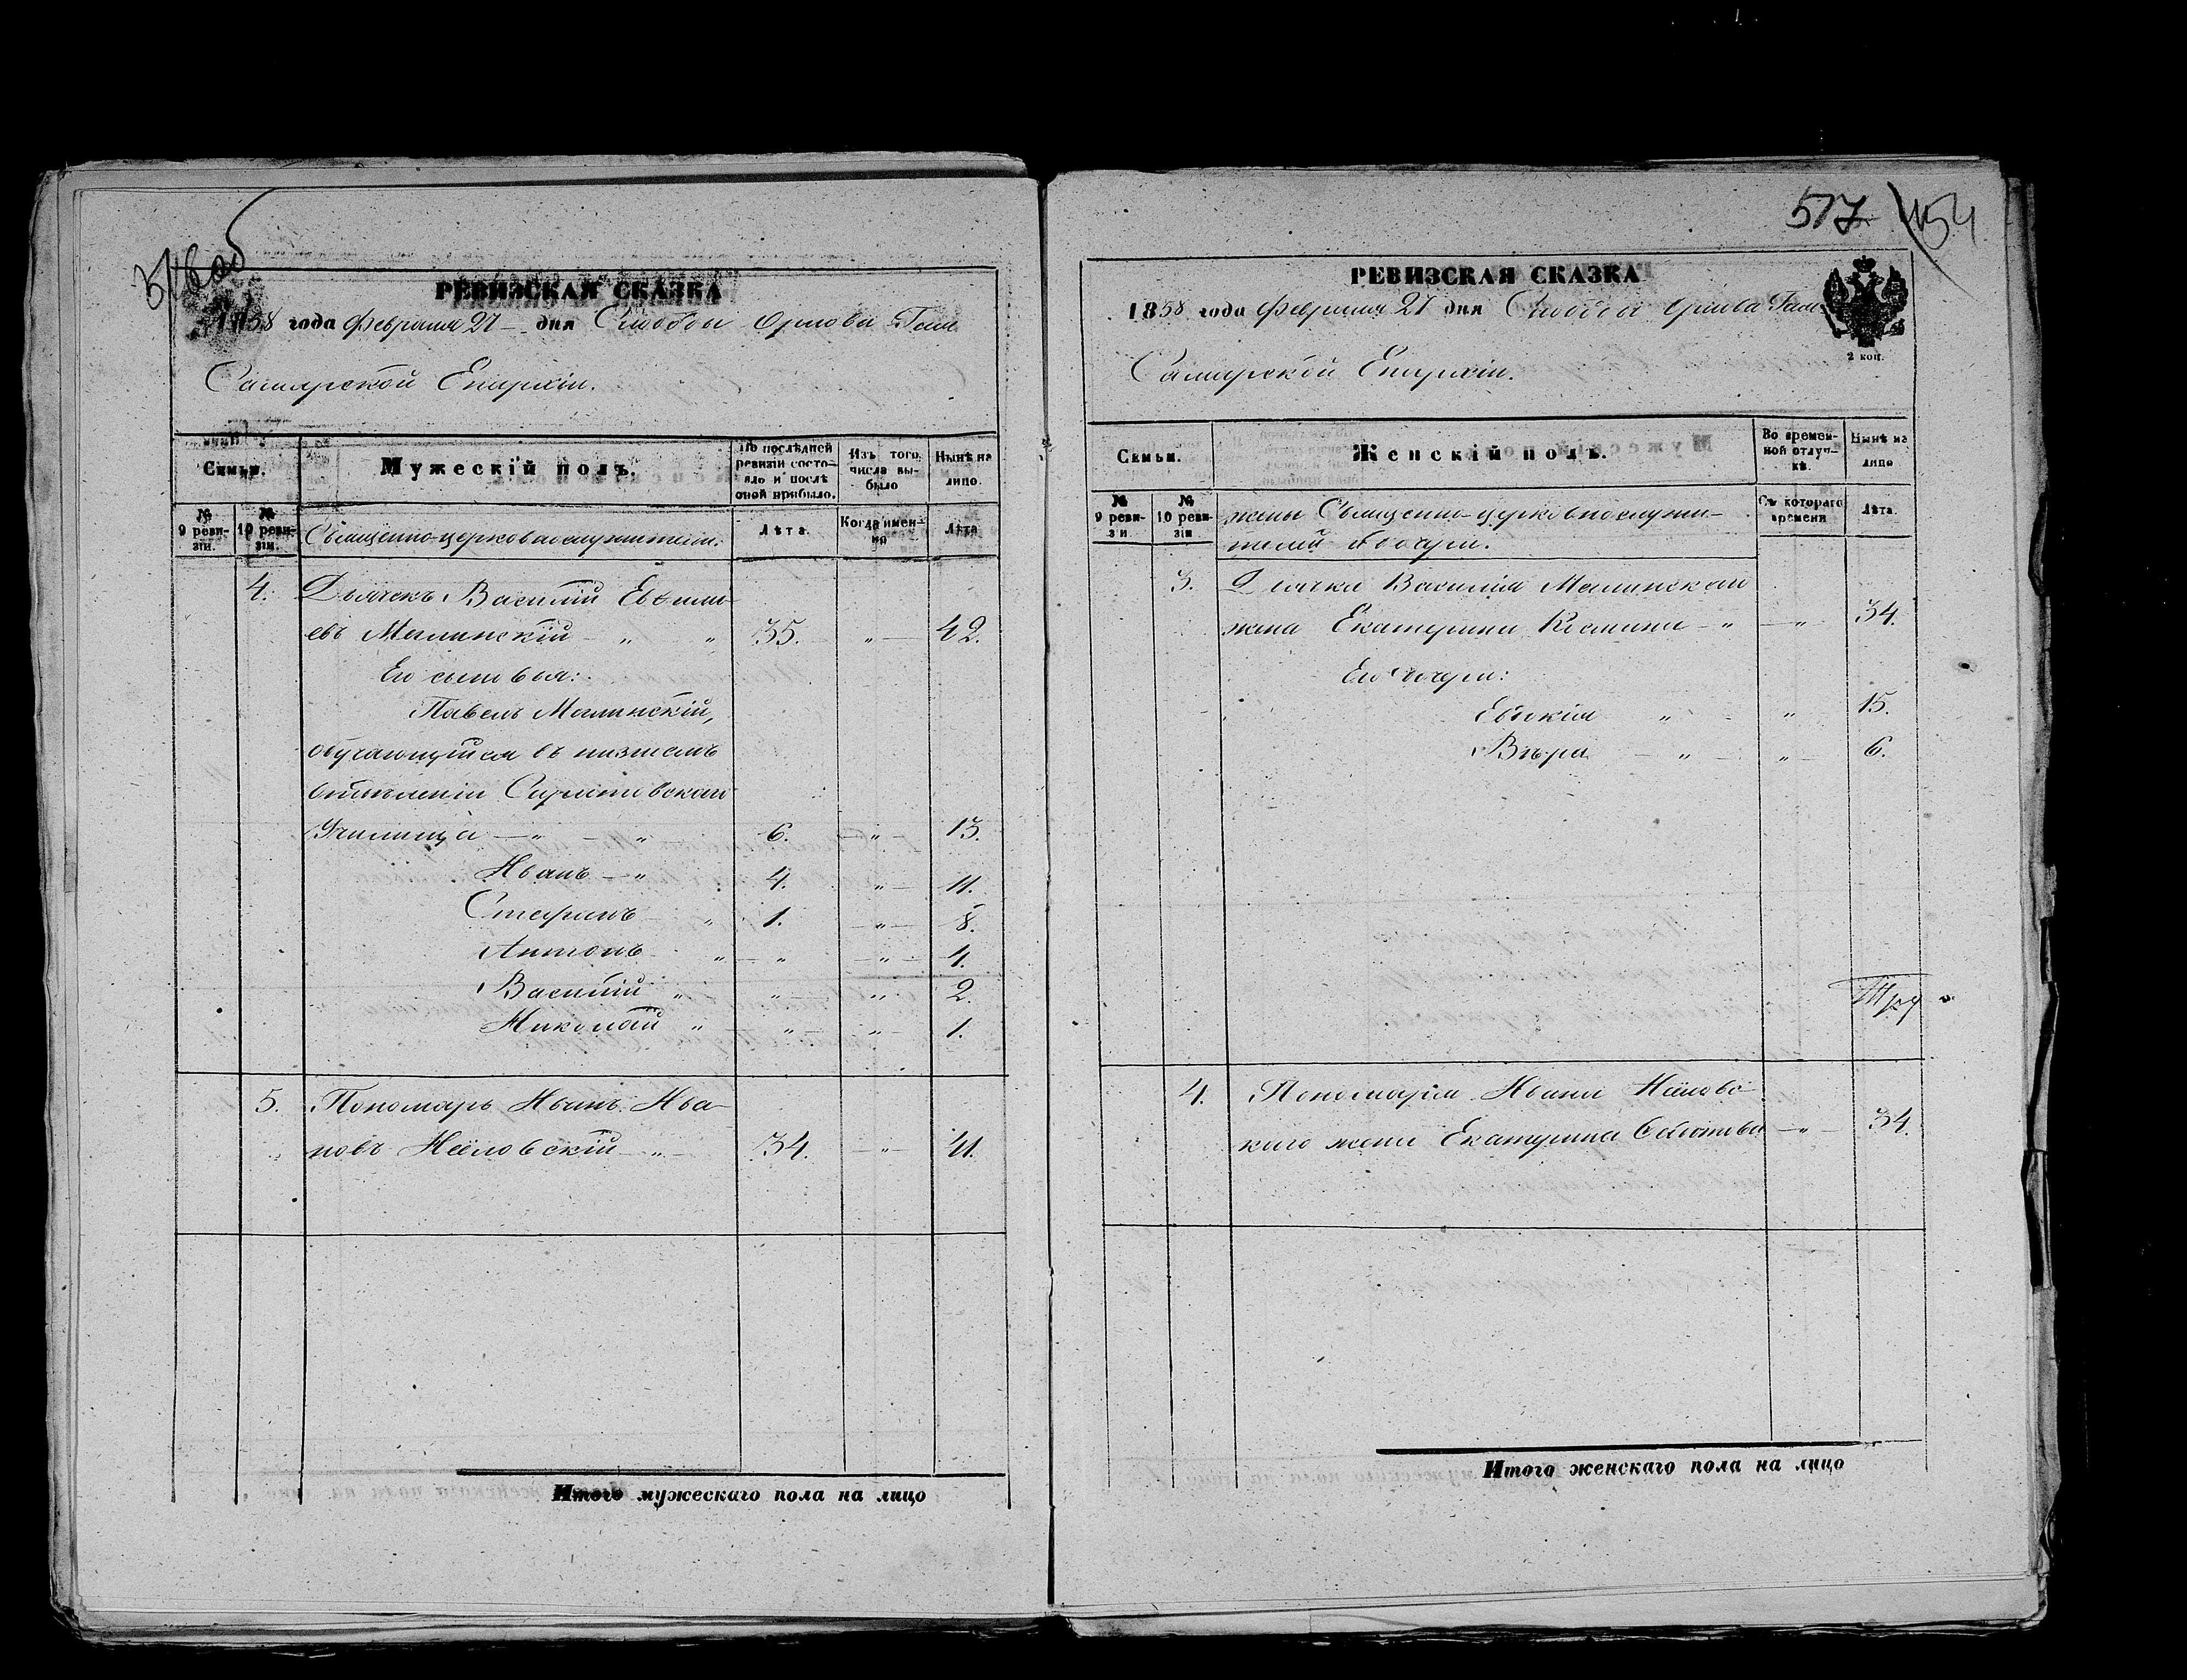 516об
РЕВИЗСКАЯ СКАЗКА
1858 года Февраля 27 дня Слободы Орлова Гая
Самарской Епархіи.
Семьи.
Мужескій полъ.
По послѣдней ревизіи состояло и послѣ оной прибыло.
Изъ того числа выбыло
Нынѣ на лицо.
№ 9 ревизіи.
№ 10 ревизіи.
Священно-церковнослужители:
Лѣта.
Когда именно
Лѣта
4. Дьячекъ Василій Евѳимі-
евъ Малинскій - " " 35. " 42.
Его сыновья:
Павелъ Малинскій,
обучающійся въ низшемъ
отдѣленіи Саратовскаго
Училища - " - " 6. " 13.
Иванъ - " 4. " 11.
Стефанъ " 1. " 8.
Антонъ " " " 4.
Василій " " " 2.
Николай " " " 1.
5. Пономарь Иванъ Ива-
новъ Нѣловскій - " - 34. " 41.
Итого мужескаго пола на лицо
517 154
РЕВИЗСКАЯ СКАЗКА
1858 года Февраля 27 дня Слободы Орлова Гая
2 коп.
Самарской Епархіи.
Семьи.
Женскій полъ.
Во временной отлучкѣ.
Нынѣ на лицо
№ 9 ревизіи
№ 10 ревизіи
жены Священно-церковнослужи-
телей и дочери.
Съ котораго времени
Лѣта.
3. Дьячка Василія Малинскаго
жена Екатерина Космина - " " 34.
Его дочери:
Евдокія " " 15.
Вѣра - " - " 6.
4. Пономаря Ивана Нѣловс-
каго жена Екатерина - " - 34.
Итого женскаго пола на лицо